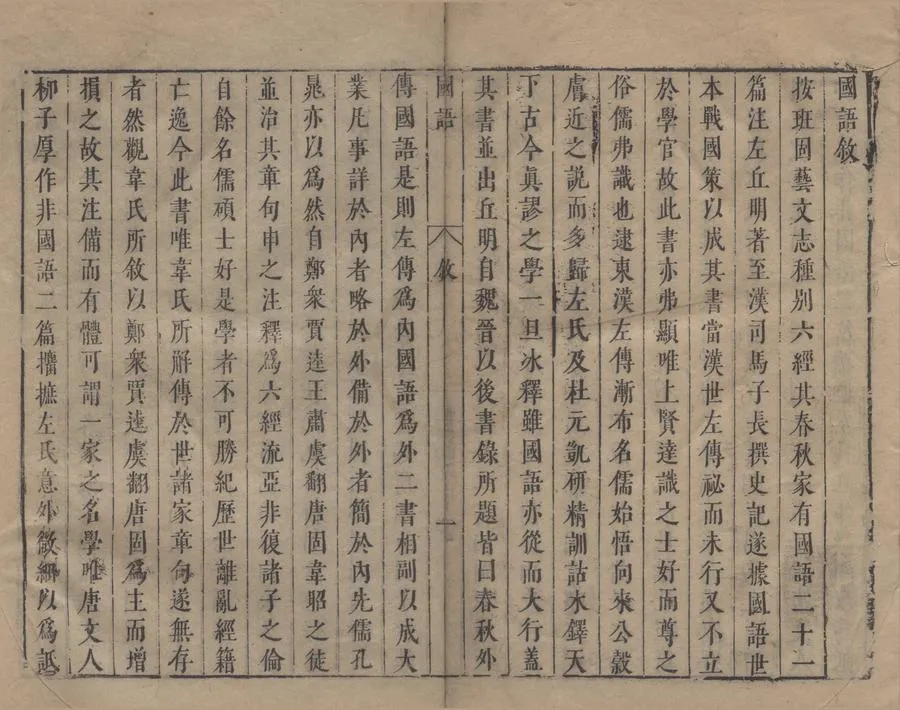 國語敘
按班固藝文志種別六經其春秋家有國語二十一
篇注左丘明著至漢司馬子長撰史記遂據國語世
本戰國策以成其書當漢世左傳祕而未行又不立
於學官故此書亦弗顯唯上賢達識之士好而尊之
俗儒弗識也逮東漢左傳漸布名儒始悟向來公穀
膚近之説而多歸左氏及杜元凱研精訓詁木鐸天
下古今眞謬之學一旦冰釋雖國語亦從而大行蓋
其書並出丘明自魏晉以後書錄所題皆曰春秋外
國語 敘 一
傳國語是則左傳爲內國語爲外二書相副以成大
業凡事詳於內者略於外備於外者簡於內先儒孔
晁亦以爲然自鄭衆賈逵王肅虞翻唐固韋昭之徒
並治其章句申之注釋爲六經流亞非復諸子之倫
自餘名儒碩士好是學者不可勝紀歷世離亂經籍
亡逸今此書唯韋氏所解傳於世諸家章句遂無存
者然觀韋氏所敘以鄭衆賈逵虞翻唐固爲主而增
損之故其注備而有體可謂一家之名學唯唐文人
柳子厚作非國語二篇攟摭左氏意外微細以爲詆